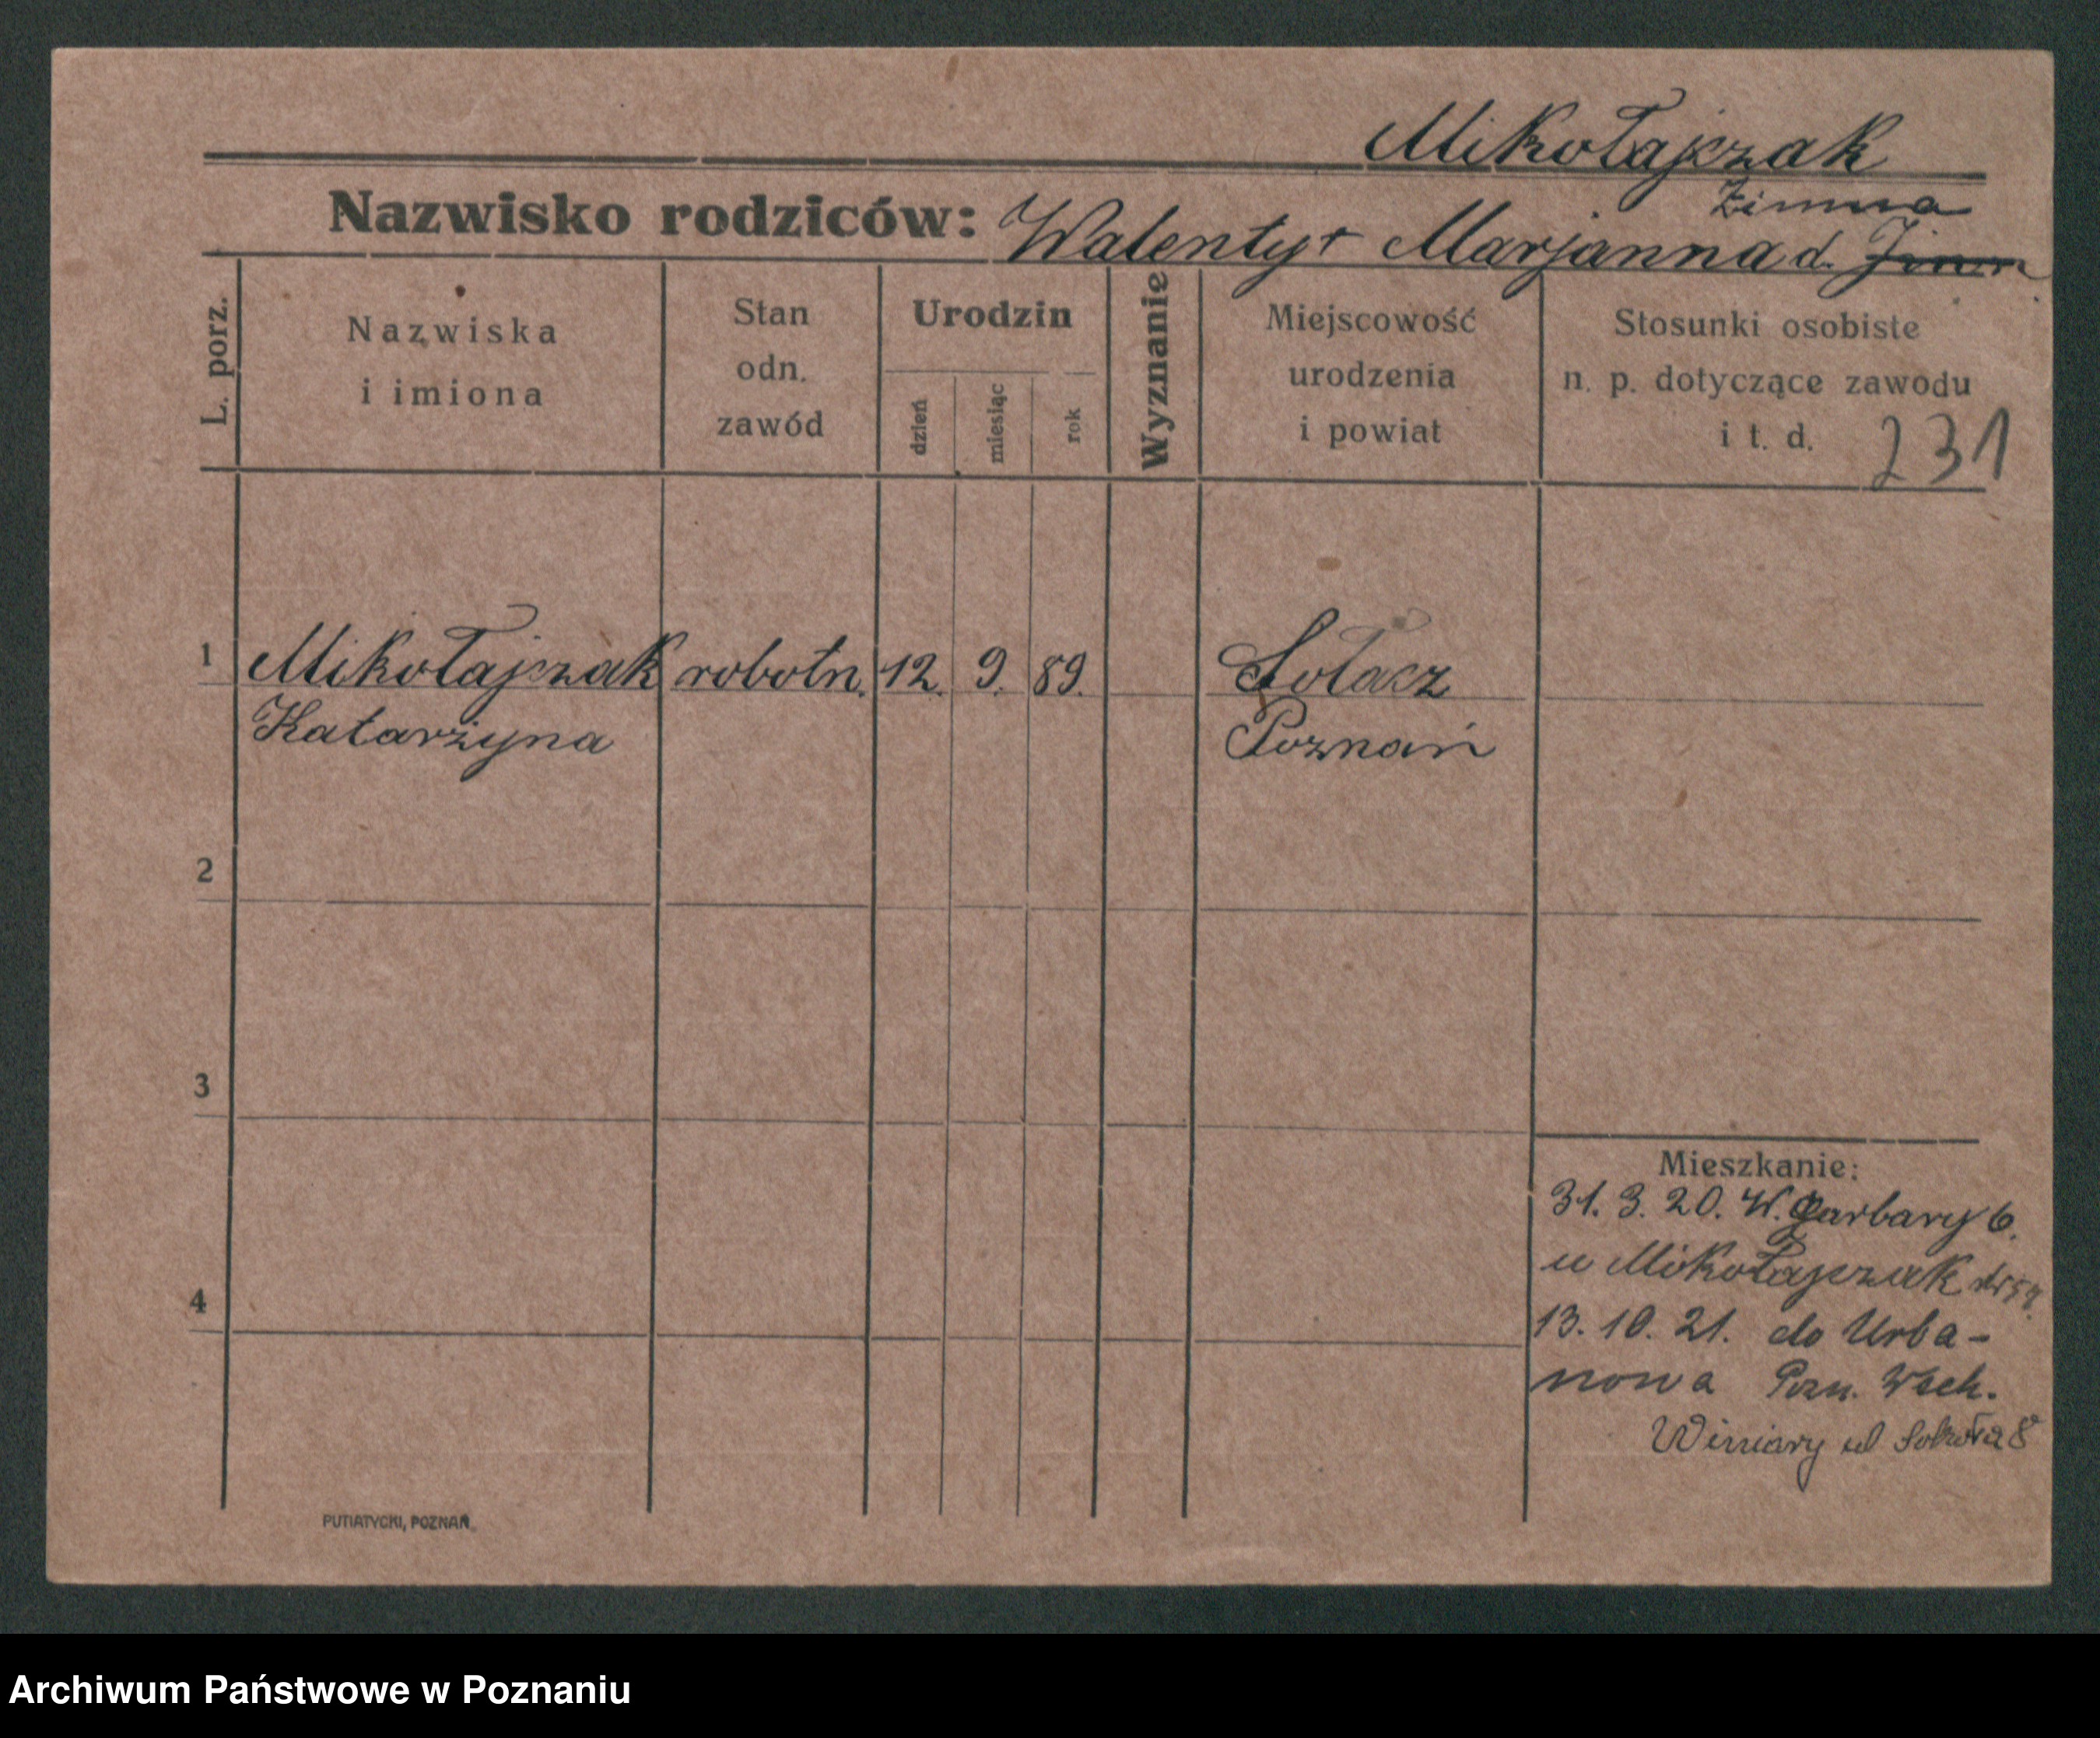 Mikołajczak
Zimna
Nazwisko rodziców: Walenty + Marjanna d.
L. porz.
Nazwiska
i imiona
Stan
odn.
zawód
Urodzin
dzień
miesiąc
rok
Wyznanie
Miejscowość
urodzenia
i powiat
Stosunki osobiste
n. p. dotyczące zawodu
i t. d.
231
1 Mikołajczak robotn. 12. 9. 89. Sołacz
Katarzyna Poznań
2
3
4
Mieszkanie:
31. 3. 20. W. Garbary 6.
u Mikołajczak
13. 10. 21. do Urba-
nowa Pozn. Wsch.
Winiary ul Sokoła 8
PUTIATYCKI, POZNAŃ.
Archiwum Państwowe w Poznaniu